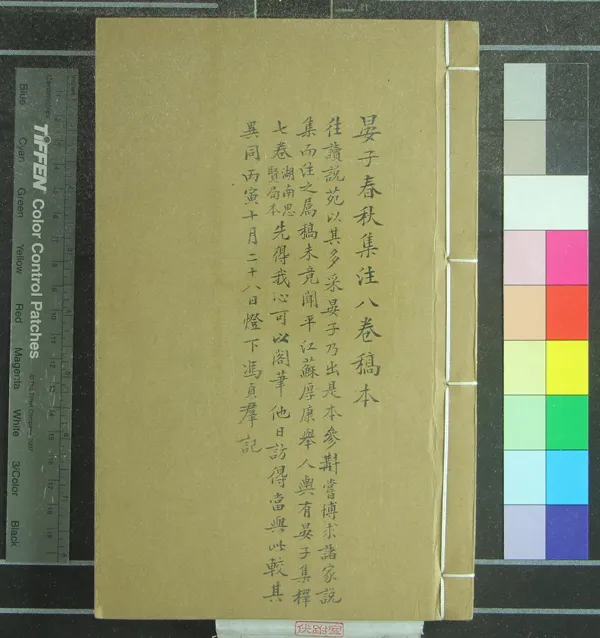 晏子春秋集注八卷稿本
往讀說苑以其多采晏子乃出是本參斠嘗博求諸家說
集而注之屬稿未竟聞平江蘇厚康舉人輿有晏子集釋
七卷湖南思賢局本先得我心可以閣筆他日訪得當與此較其
異同丙寅十月二十八日燈下馮貞羣記
TIFFEN Color Control Patches
Blue
Cyan
Green
Yellow
Red
Magenta
White
3/Color
Black